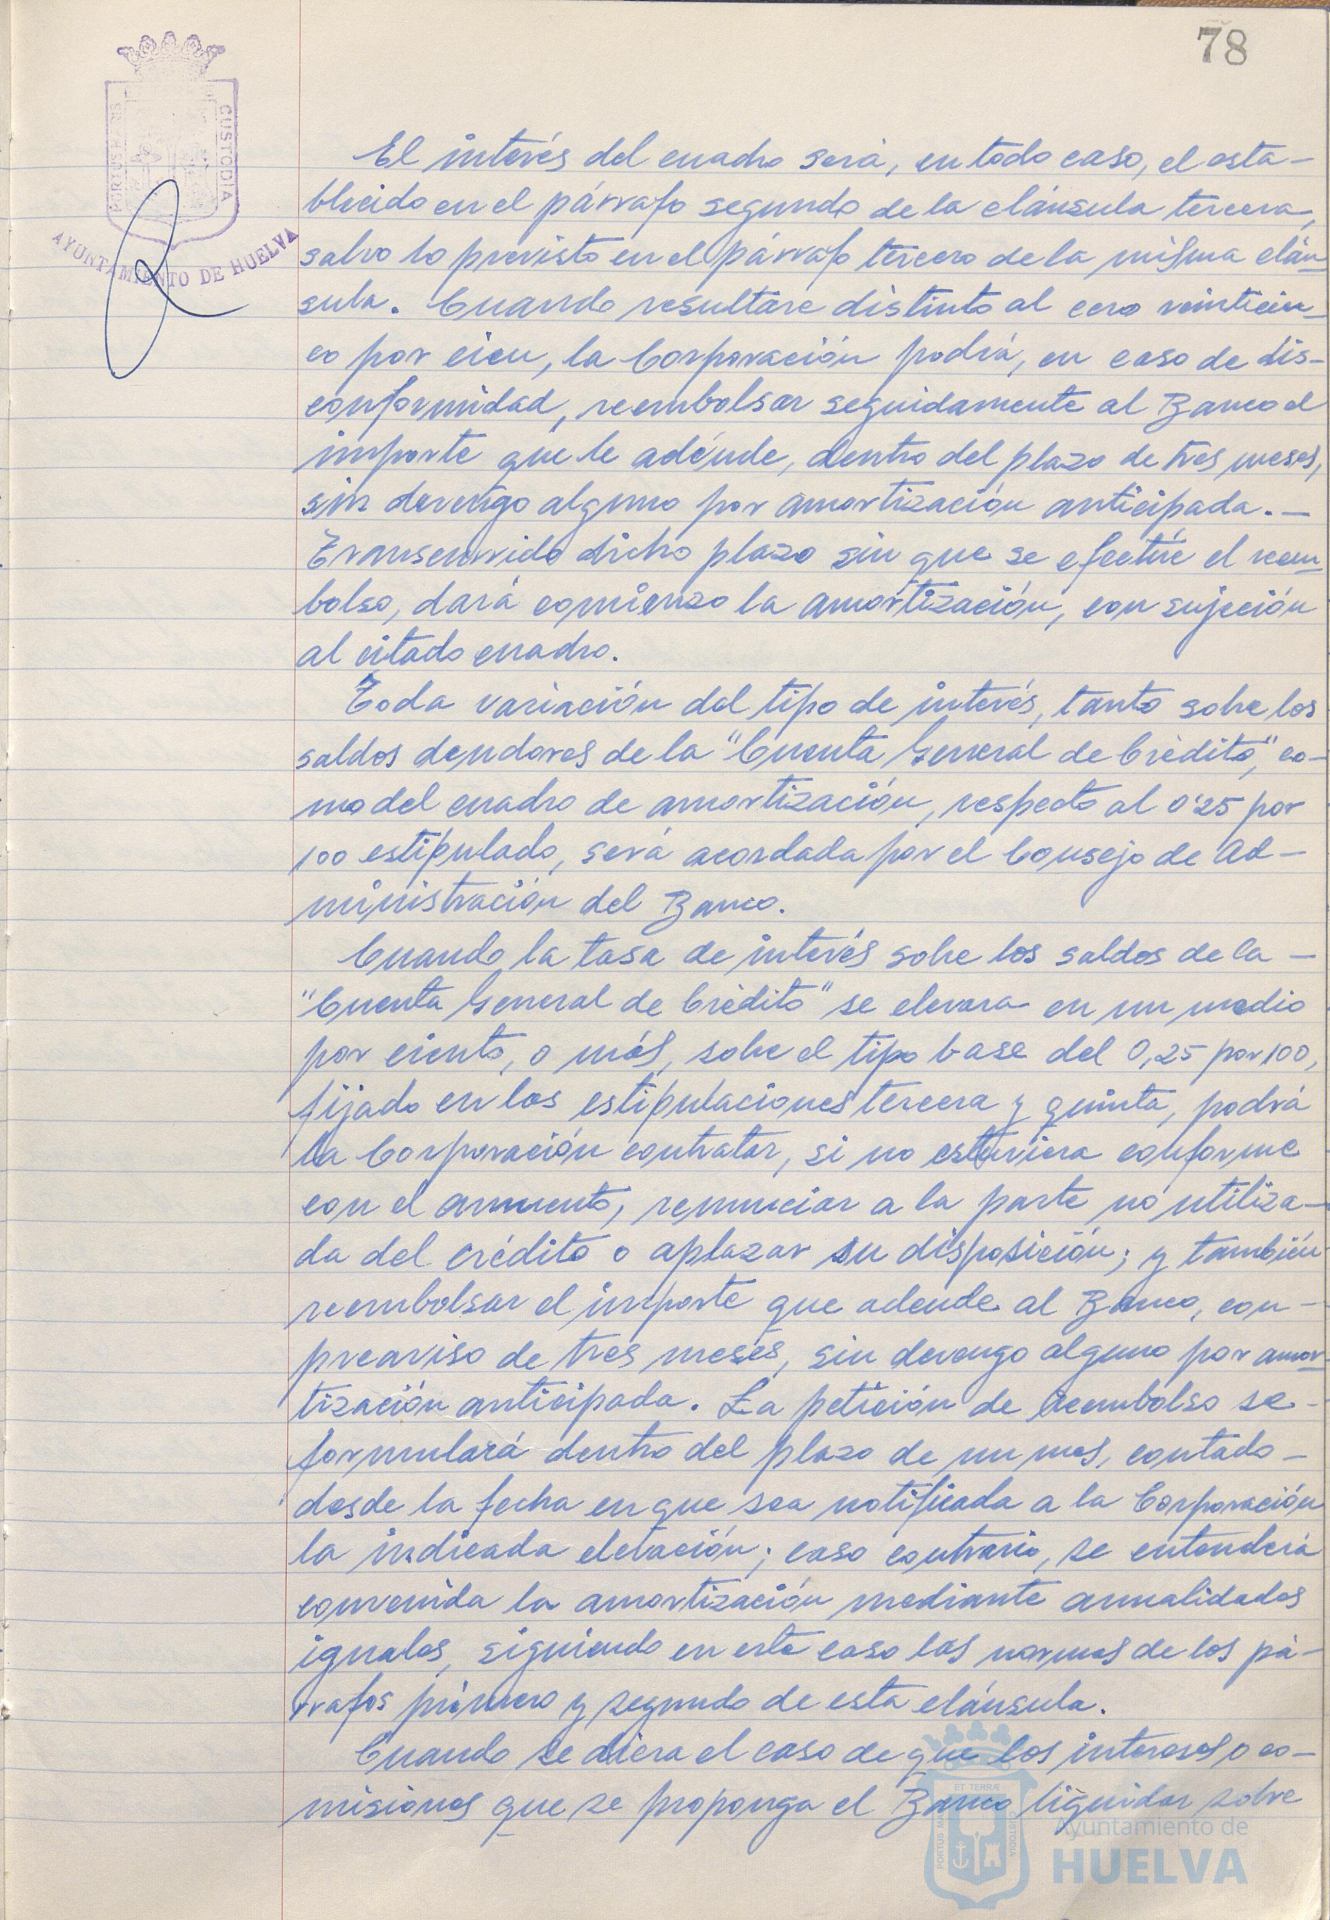 78
PORTUS MARIS
CUSTODIA
AYUNTAMIENTO DE HUELVA
El interés del cuadro será, en todo caso, el esta-
blecido en el párrafo segundo de la cláusula tercera,
salvo lo previsto en el párrafo tercero de la misma cláu-
sula. Cuando resultare distinto al cero veinticin-
co por cien, la Corporación podrá, en caso de dis-
conformidad, reembolsar seguidamente al Banco el
importe que le adéude, dentro del plazo de tres meses,
sin devengo alguno por amortización anticipada. -
Transcurrido dicho plazo sin que se efectúe el reem-
bolso, dará comienzo la amortización, con sujeción
al citado cuadro.
Toda variación del tipo de interés, tanto sobre los
saldos deudores de la "Cuenta General de Crédito", co-
mo del cuadro de amortización, respecto al 0'25 por
100 estipulado, será acordada por el Consejo de Ad-
ministración del Banco.
Cuando la tasa de interés sobre los saldos de la -
"Cuenta General de Crédito" se elevara en un medio
por ciento, o más, sobre el tipo base del 0,25 por 100,
fijado en las estipulaciones tercera y quinta, podrá
la Corporación contratar, si no estuviera conforme
con el aumento, renunciar a la parte no utiliza-
da del crédito o aplazar su disposición; y también
reembolsar el importe que adeude al Banco, con -
preaviso de tres meses, sin devengo alguno por amor-
tización anticipada. La petición de reembolso se -
formulará dentro del plazo de un mes, contado -
desde la fecha en que sea notificada a la Corporación
la indicada elevación; caso contrario, se entenderá
convenida la amortización mediante anualidades
iguales, siguiendo en este caso las normas de los pá-
rrafos primero y segundo de esta cláusula.
Cuando se diera el caso de que los intereses o co-
misiones que se proponga el Banco liquidar sobre
ET TERRÆ
PORTUS MARIS
CUSTODIA
Ayuntamiento de
HUELVA